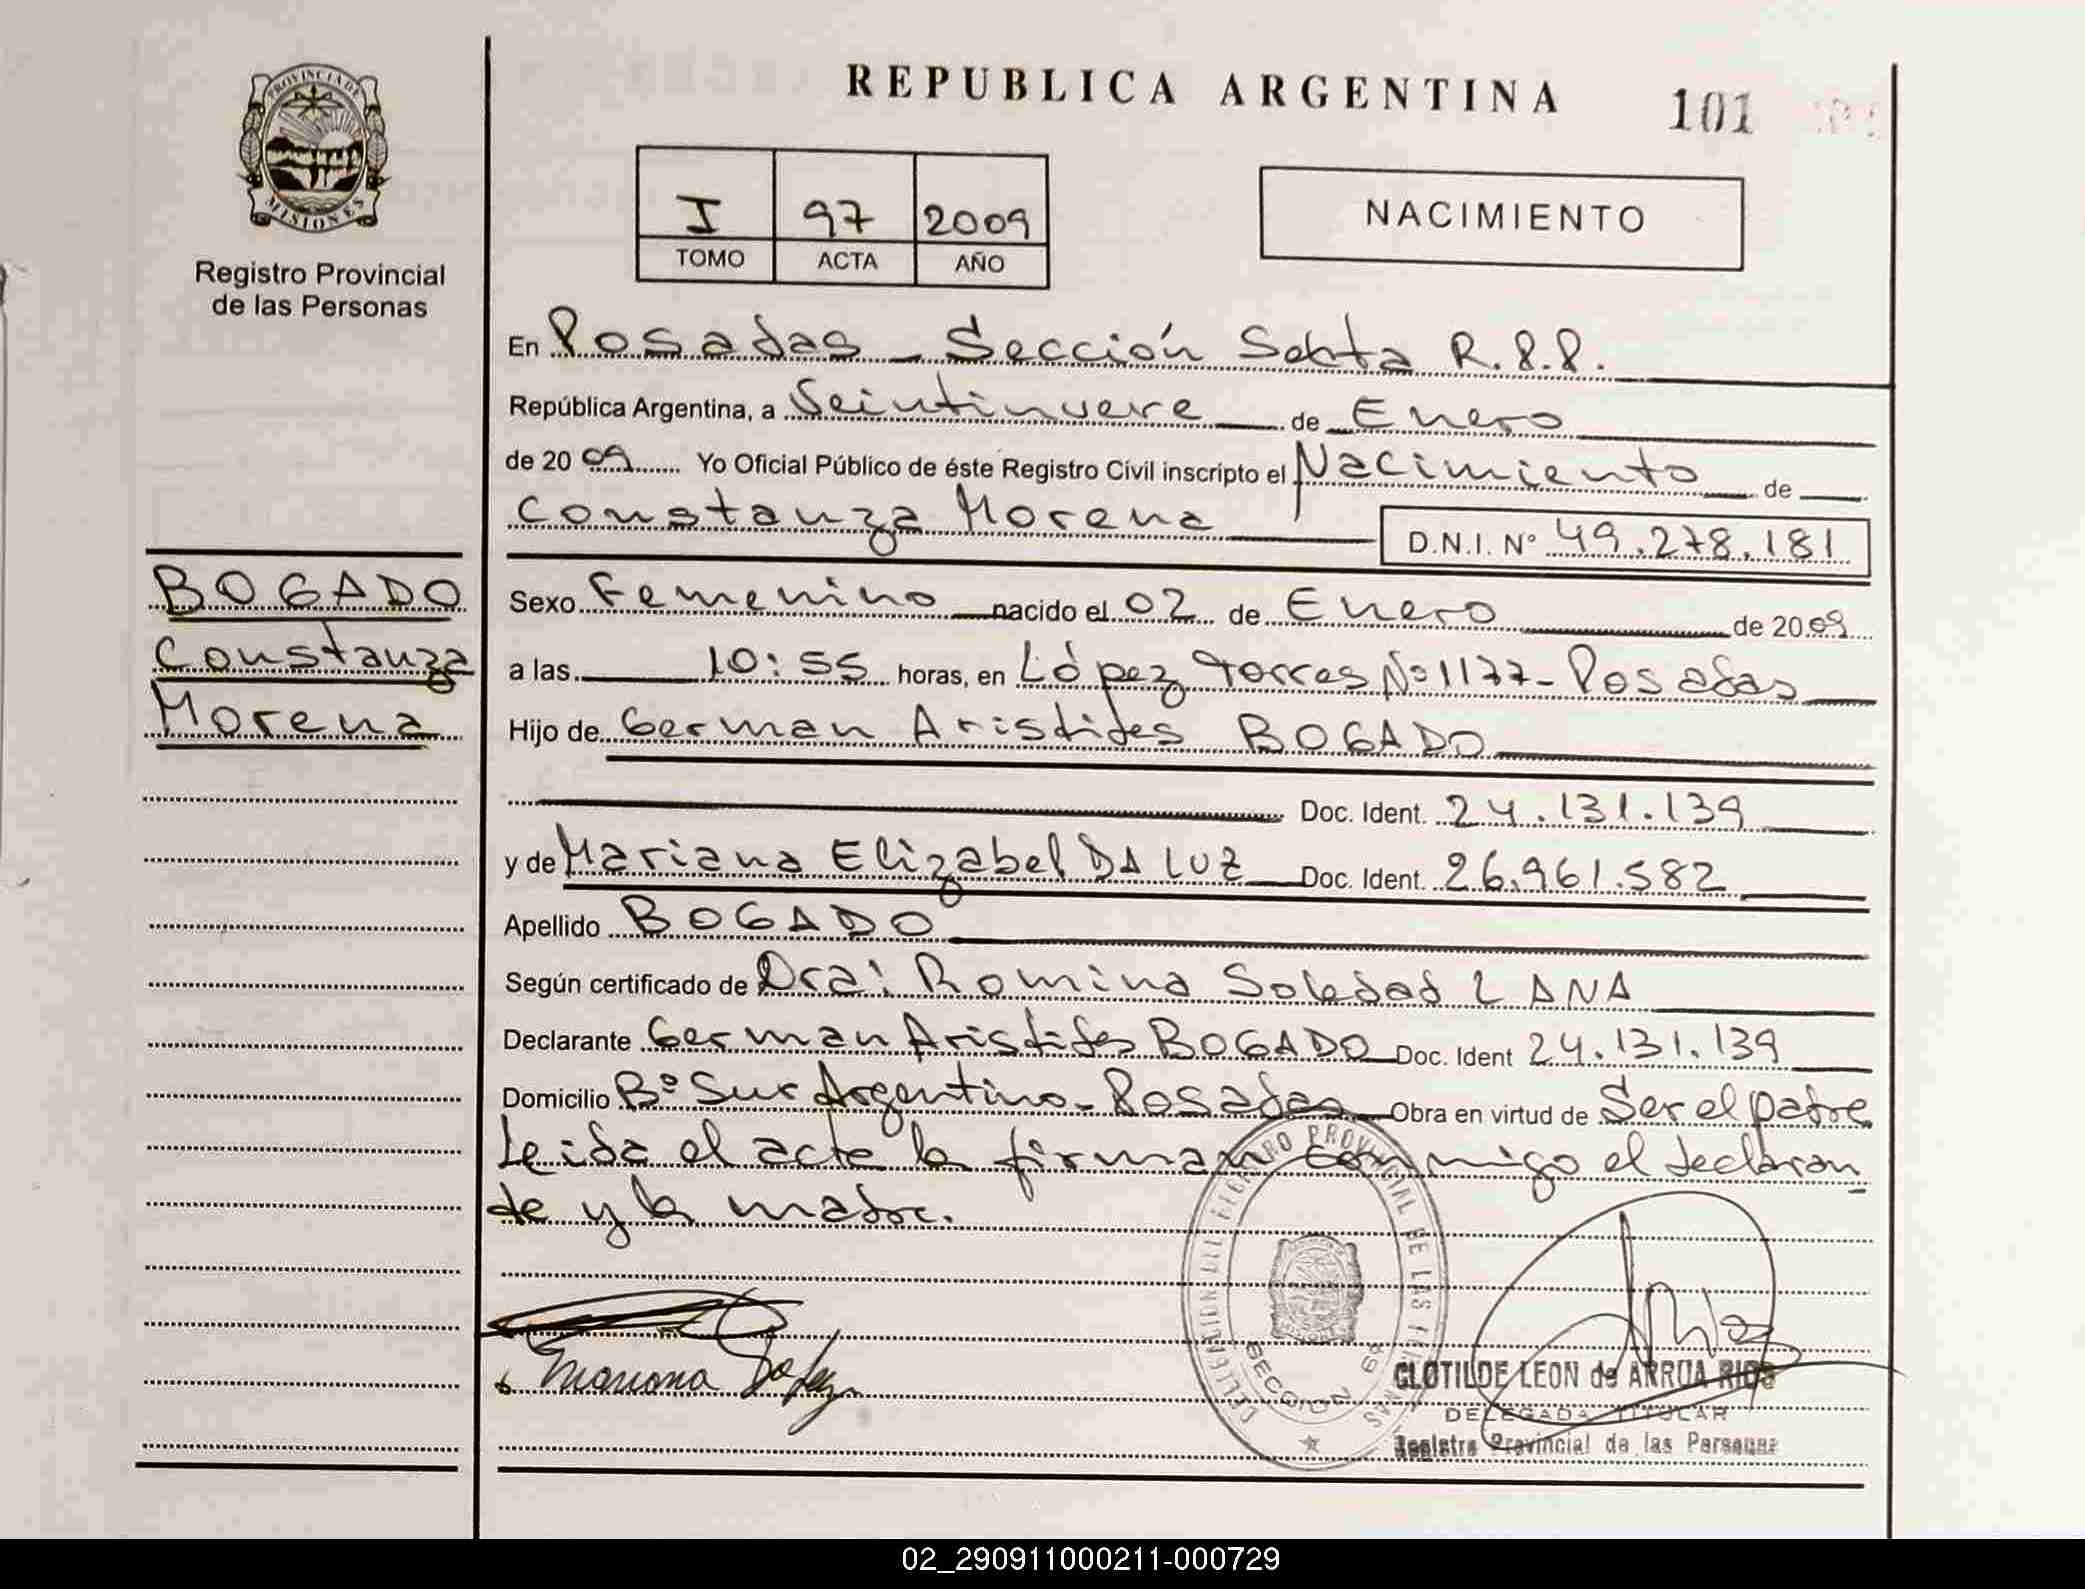 PROVINCIA DE
MISIONES
Registro Provincial
de las Personas
BOGADO
Constanza
Morena
REPUBLICA ARGENTINA
101
I 97 2009
TOMO ACTA AÑO
NACIMIENTO
En Posadas - Sección Sexta R.P.P.
República Argentina, a Veintinueve de Enero
de 20 09 Yo Oficial Público de éste Registro Civil inscripto el Nacimiento de
Constanza Morena D.N.I. Nº 49.278.181
Sexo Femenino nacido el 02 de Enero de 20 09
a las 10:55 horas, en López Torres Nº 1177 - Posadas
Hijo de German Aristides BOGADO
Doc. Ident. 24.131.139
y de Mariana Elizabel DA LUZ Doc. Ident. 26.961.582
Apellido BOGADO
Según certificado de Dra: Romina Soledad LANA
Declarante German Aristides BOGADO Doc. Ident 24.131.139
Domicilio Bº Sur Argentino - Posadas Obra en virtud de Ser el padre
Leida el acta la firman conmigo el declaran
te y la madre.
Mariana
DELEGACION DEL REGISTRO PROVINCIAL DE LAS PERSONAS
SECCION 6ª
CLOTILDE LEON de ARRUA RIOS
DELEGADA TITULAR
Registro Provincial de las Personas
02_290911000211-000729